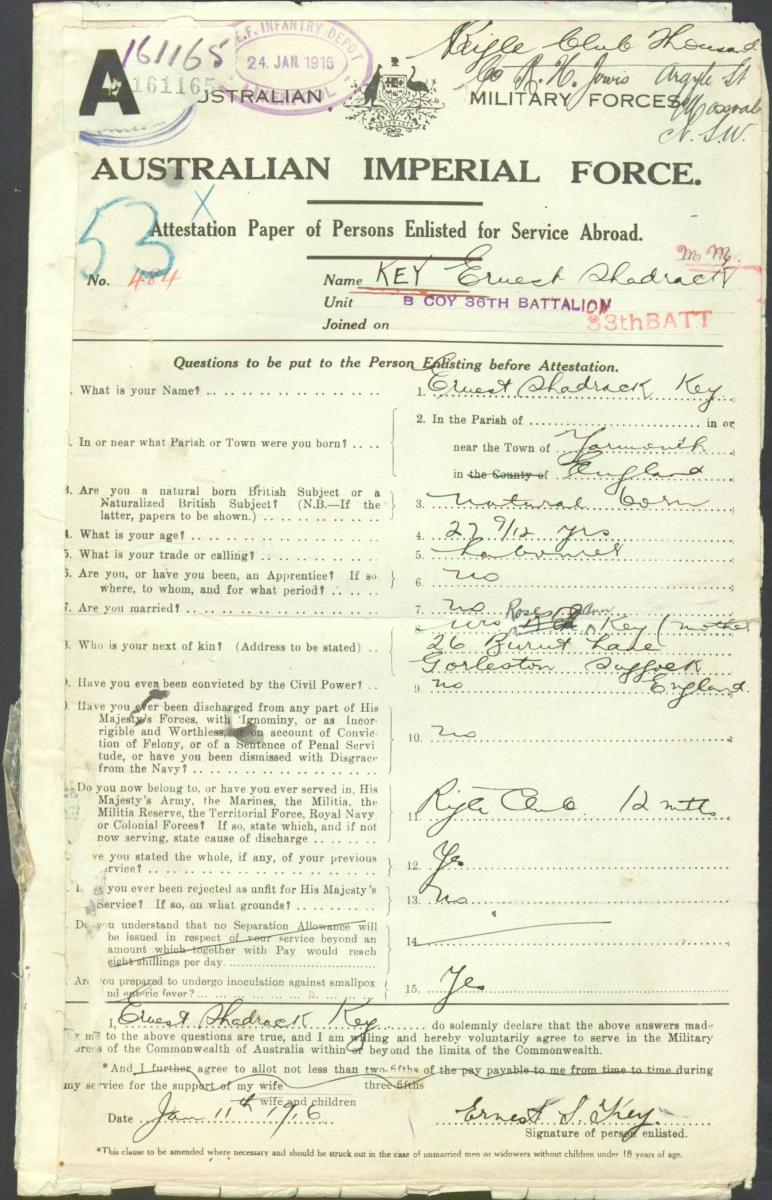 161165
A
161165
E.F. INFANTRY DEPOT
24 JAN. 1916
Club
Co R. H. Argyle St
N.S.W.
USTRALIAN MILITARY FORCES
AUSTRALIAN IMPERIAL FORCE.
53 x
Attestation Paper of Persons Enlisted for Service Abroad.
M M
No. 484 Name KEY Ernest Shadrack
Unit B COY 36TH BATTALION
Joined on 33thBATT
Questions to be put to the Person Enlisting before Attestation.
. What is your Name? 1. Ernest Shadrack Key
. In or near what Parish or Town were you born? 2. In the Parish of in or
near the Town of Yarmouth
in the County of England
3. Are you a natural born British Subject or a
Naturalized British Subject? (N.B.—If the
latter, papers to be shown.) 3. Natural born
4. What is your age? 4. 27 9/12 yrs
5. What is your trade or calling? 5. Labourer
6. Are you, or have you been, an Apprentice? If so
where, to whom, and for what period? 6. no
7. Are you married? 7. no
8. Who is your next of kin? (Address to be stated) 8. Mrs Rose Ann Key (mother
26 Burnt Lane
Gorleston Suffock
England
9. Have you ever been convicted by the Civil Power? 9. no
). Have you ever been discharged from any part of His
Majesty's Forces, with Ignominy, or as Incor-
rigible and Worthless, or on account of Convic-
tion of Felony, or of a Sentence of Penal Servi
tude, or have you been dismissed with Disgrace
from the Navy? 10. no
Do you now belong to, or have you ever served in, His
Majesty's Army, the Marines, the Militia, the
Militia Reserve, the Territorial Force, Royal Navy
or Colonial Forces? If so, state which, and if not
now serving, state cause of discharge 11. Rifle Club 12 mths
ve you stated the whole, if any, of your previous
rvice? 12. Yes
you ever been rejected as unfit for His Majesty's
Service? If so, on what grounds? 13. No
Do you understand that no Separation Allowance will
be issued in respect of your service beyond an
amount which together with Pay would reach
eight shillings per day. 14
Are you prepared to undergo inoculation against smallpox
nd enteric fever? 15. Yes
I, Ernest Shadrack Key do solemnly declare that the above answers made
y me to the above questions are true, and I am willing and hereby voluntarily agree to serve in the Military
orces of the Commonwealth of Australia within or beyond the limits of the Commonwealth.
*And I further agree to allot not less than two-fifths of the pay payable to me from time to time during
my service for the support of my wife three-fifths
wife and children
Date Jan 11th 1916 Ernest S. Key.
Signature of person enlisted.
*This clause to be amended where necessary and should be struck out in the case of unmarried men or widowers without children under 18 years of age.